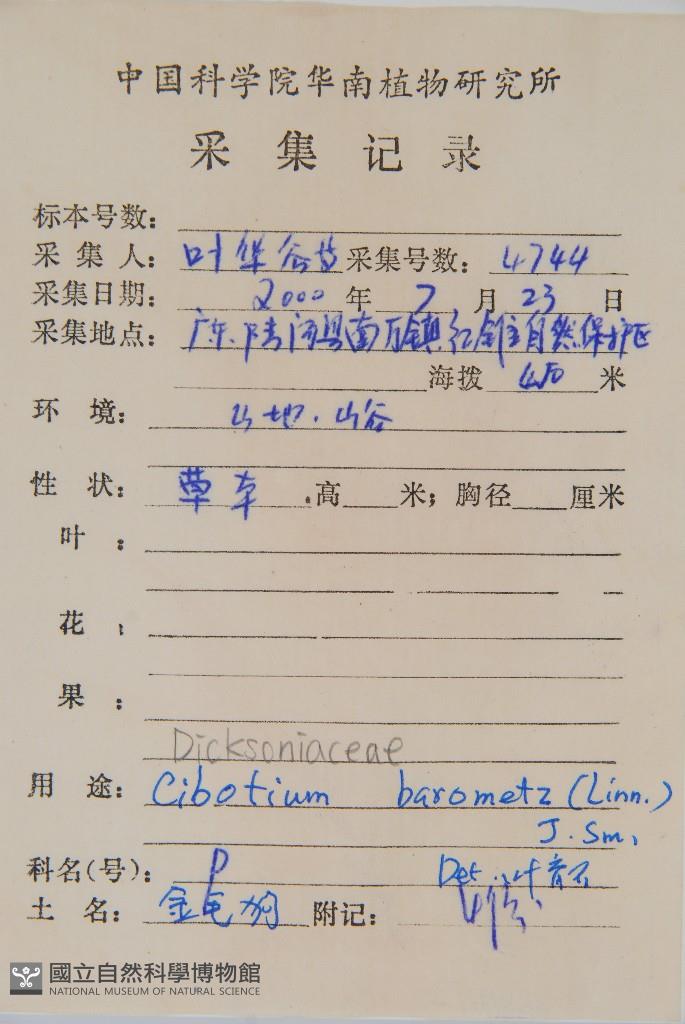 中国科学院华南植物研究所
采集记录
标本号数:
采集人: 叶华谷等 采集号数: 4744
采集日期: 2000 年 7 月 23 日
采集地点: 广东陆河县南万镇红锥自然保护区
海拨 450 米
环境: 山地.山谷
性状: 草本 .高 米; 胸径 厘米
叶:
花:
果:
Dicksoniaceae
用途: Cibotium barometz (Linn.)
J. Sm.
科名(号): P Det.
土名: 金毛狗 附记:
國立自然科學博物館
NATIONAL MUSEUM OF NATURAL SCIENCE